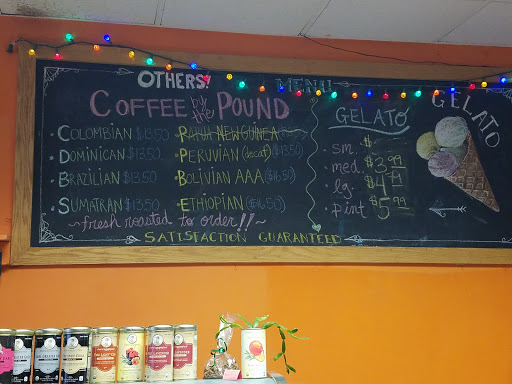 OTHERS!
MENU
COFFEE by the POUND
COLOMBIAN $13.50
DOMINICAN $13.50
BRAZILIAN $13.50
SUMATRAN $13.50
PAPUA NEW GUINEA
PERUVIAN (decaf) ($13.50)
BOLIVIAN AAA ($16.50)
ETHIOPIAN ($16.50)
~fresh roasted to order!!~
SATISFACTION GUARANTEED
GELATO
sm. $
med. $3.99
lg. $4.99
pint $5.99
GELATO